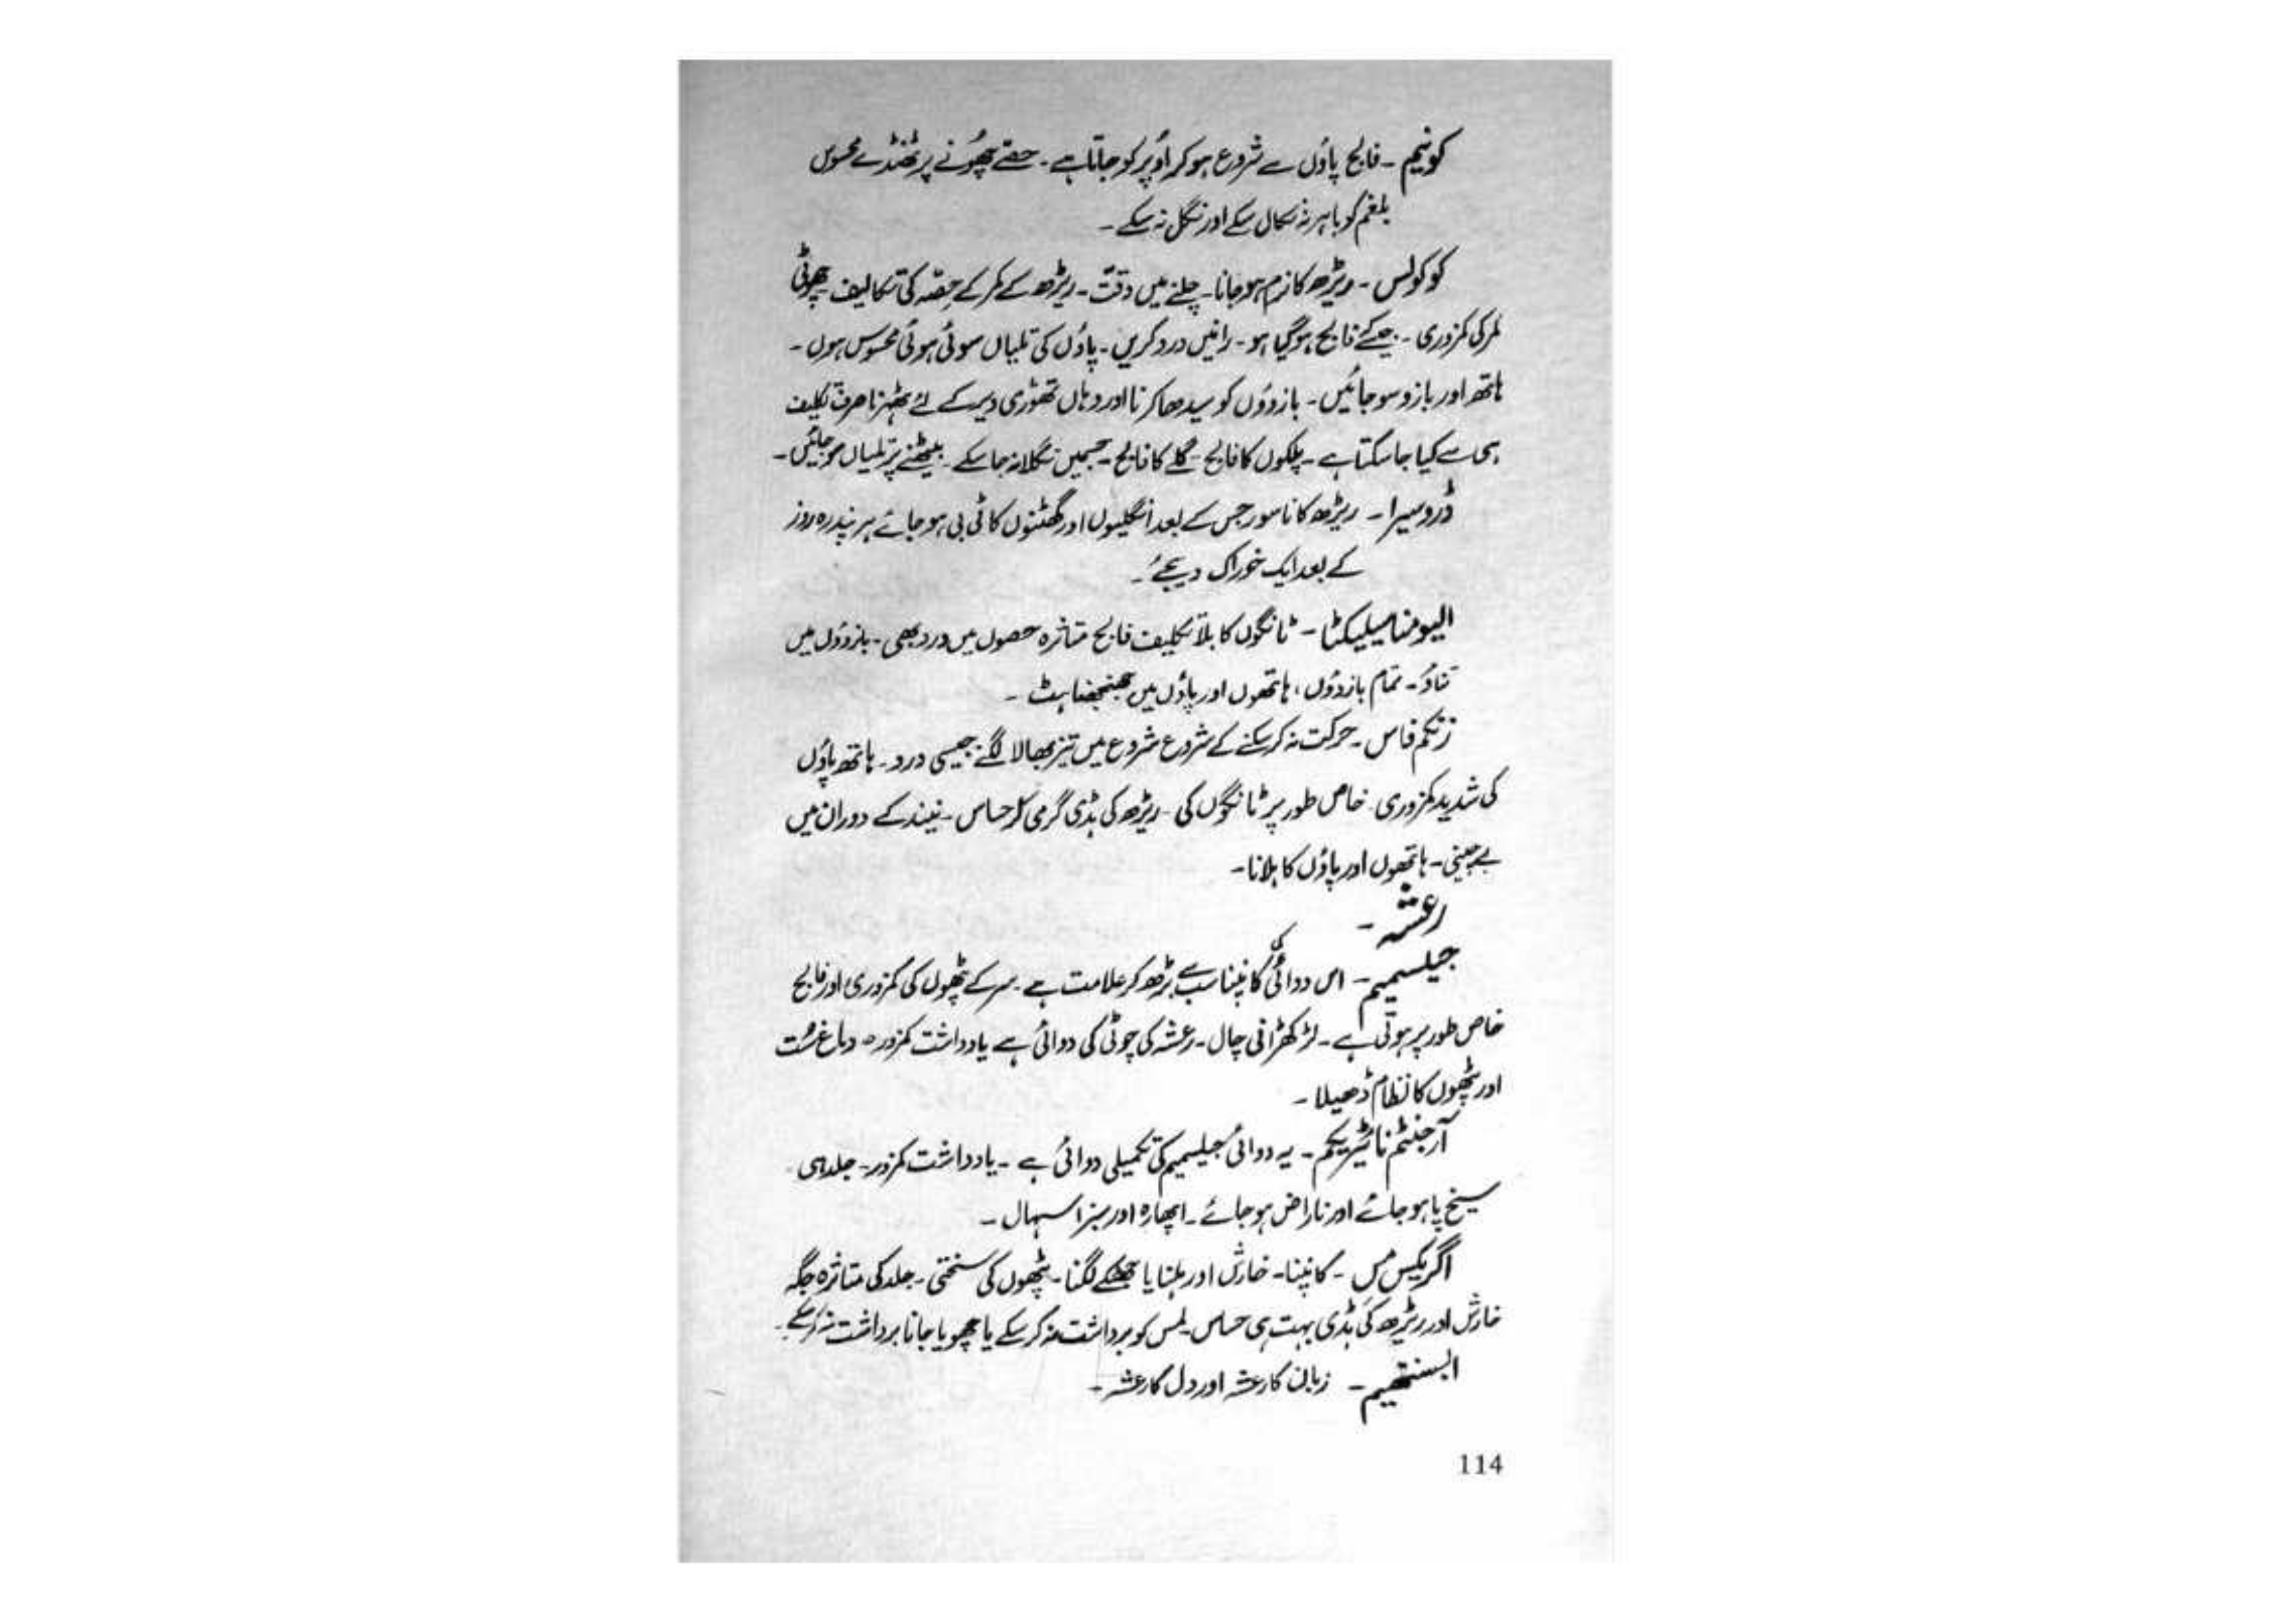 کونیم - فالج پاؤں سے شروع ہو کر اُوپر کو جاتا ہے - حصّے چھُونے پر ٹھنڈے محسوس
بلغم کو باہر نہ نکال سکے اور نگل نہ سکے -
کوکولس - ریڑھ کا نرم ہو جانا - چلنے میں دقّت - ریڑھ کے کمر کے حِصّہ کی تکالیف - چھوٹی
کمر کی کمزوری - جیسے فالج ہو گیا ہو - رانیں درد کریں - پاؤں کی تلیاں سوئی ہوئی محسوس ہوں -
ہاتھ اور بازو سو جائیں - بازوؤں کو سیدھا کرنا اور وہاں تھوڑی دیر کے لئے ٹھہرنا صرف تکلیف
ہی سے کیا جا سکتا ہے - پلکوں کا فالج - گلے کا فالج - جسمیں نگلا نہ جا سکے - بیٹھنے پر تلیاں سو جائیں -
ڈروسیرا - ریڑھ کا ناسور جس کے بعد انگلیوں اور گھٹنوں کا ٹی بی ہو جائے ہر پندرہ روز
کے بعد ایک خوراک دیجئے -
الیومنا سیلیکٹا - ٹانگوں کا بلا تکلیف فالج متاثرہ حصوں میں درد بھی - بازوؤں میں
تناؤ - تمام بازوؤں، ہاتھوں اور پاؤں میں جھنجھناہٹ -
زنکم فاس - حرکت نہ کر سکنے کے شروع شروع میں تیز بھالا لگنے جیسی درد - ہاتھ پاؤں
کی شدید کمزوری خاص طور پر ٹانگوں کی - ریڑھ کی ہڈی گرمی کر حساس - نیند کے دوران میں
بے چینی - ہاتھوں اور پاؤں کا ہلانا -
رعشہ -
جیلسمیم - اس دوائی کی کانپنا سب سے بڑھ کر علامت ہے - سر کے پٹھوں کی کمزوری اور فالج
خاص طور پر ہوتی ہے - لڑکھڑاتی چال - رعشہ کی چوٹی کی دوائی ہے یادداشت کمزور - دماغ سُست
اور پٹھوں کا نظام ڈھیلا -
آرجنٹم نائیٹریکم - یہ دوائی جیلسمیم کی تکمیلی دوائی ہے - یادداشت کمزور - جلد ہی
سیخ پا ہو جائے اور ناراض ہو جائے - اپھارہ اور سبز اسہال -
اگریکس مس - کانپنا - خارش اور ہلنا یا جھٹکے لگنا - پٹھوں کی سختی - جلد کی متاثرہ جگہ
خارش اور ریڑھ کی ہڈی بہت ہی حساس - لمس کو برداشت نہ کر سکے یا چھویا جانا برداشت نہ کر سکے -
ابسنتھیم - زبان کا رعشہ اور دل کا رعشہ -
114